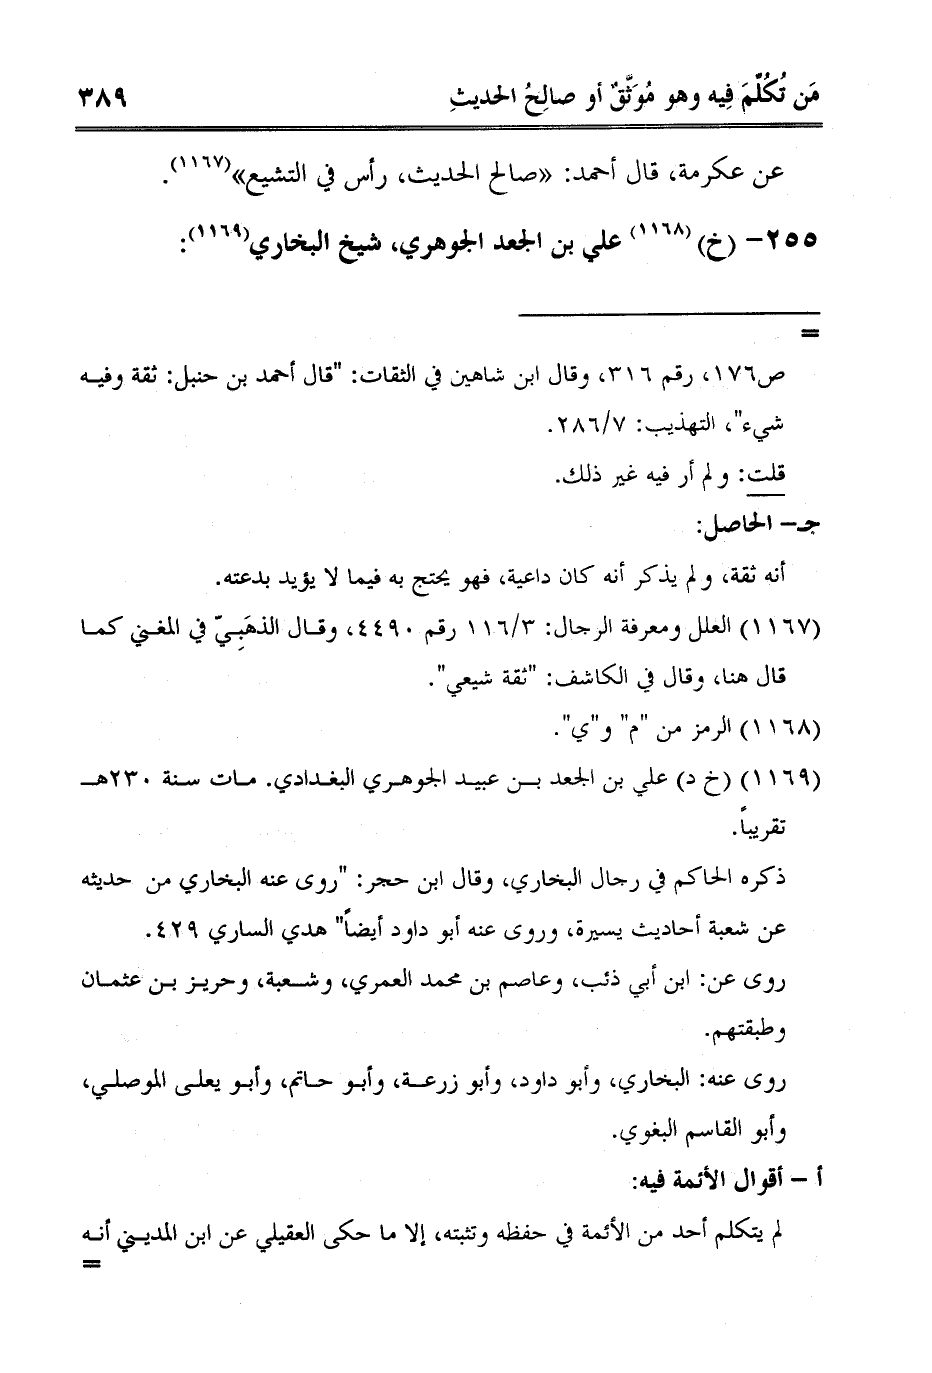 مَن تُكُلِّمَ فِيه وهو مُوَثَّقٌ أو صالِحُ الحديثِ ٣٨٩
عن عكرمة، قال أحمد: «صالح الحديث، رأس في التشيع»(١١٦٧).
٢٥٥- (خ)(١١٦٨) علي بن الجعد الجوهري، شيخ البخاري(١١٦٩):
=
ص١٧٦، رقم ٣١٦، وقال ابن شاهين في الثقات: "قال أحمد بن حنبل: ثقة وفيه
شيء"، التهذيب: ٢٨٦/٧.
قلت: و لم أر فيه غير ذلك.
جـ- الحاصل:
أنه ثقة، و لم يذكر أنه كان داعية، فهو يحتج به فيما لا يؤيد بدعته.
(١١٦٧) العلل ومعرفة الرجال: ١١٦/٣ رقم ٤٤٩٠، وقـال الذهَبِـيّ في المغـني كمـا
قال هنا، وقال في الكاشف: "ثقة شيعي".
(١١٦٨) الرمز من "م" و"ي".
(١١٦٩) (خ د) علي بن الجعد بـن عبيـد الجوهـري البغـدادي. مـات سـنة ٢٣٠هـ
تقريباً.
ذكره الحاكم في رجال البخاري، وقال ابن حجر: "روى عنه البخاري من حديثه
عن شعبة أحاديث يسيرة، وروى عنه أبو داود أيضاً" هدي الساري ٤٢٩.
روى عن: ابن أبي ذئب، وعاصم بن محمد العمري، وشـعبة، وحريـز بـن عثمـان
وطبقتهم.
روى عنه: البخاري، وأبو داود، وأبو زرعـة، وأبـو حـاتم، وأبـو يعلـى الموصلـي،
وأبو القاسم البغوي.
أ - أقوال الأئمة فيه:
لم يتكلم أحد من الأئمة في حفظه وتثبته، إلا ما حكى العقيلي عن ابن المديـني أنـه
=